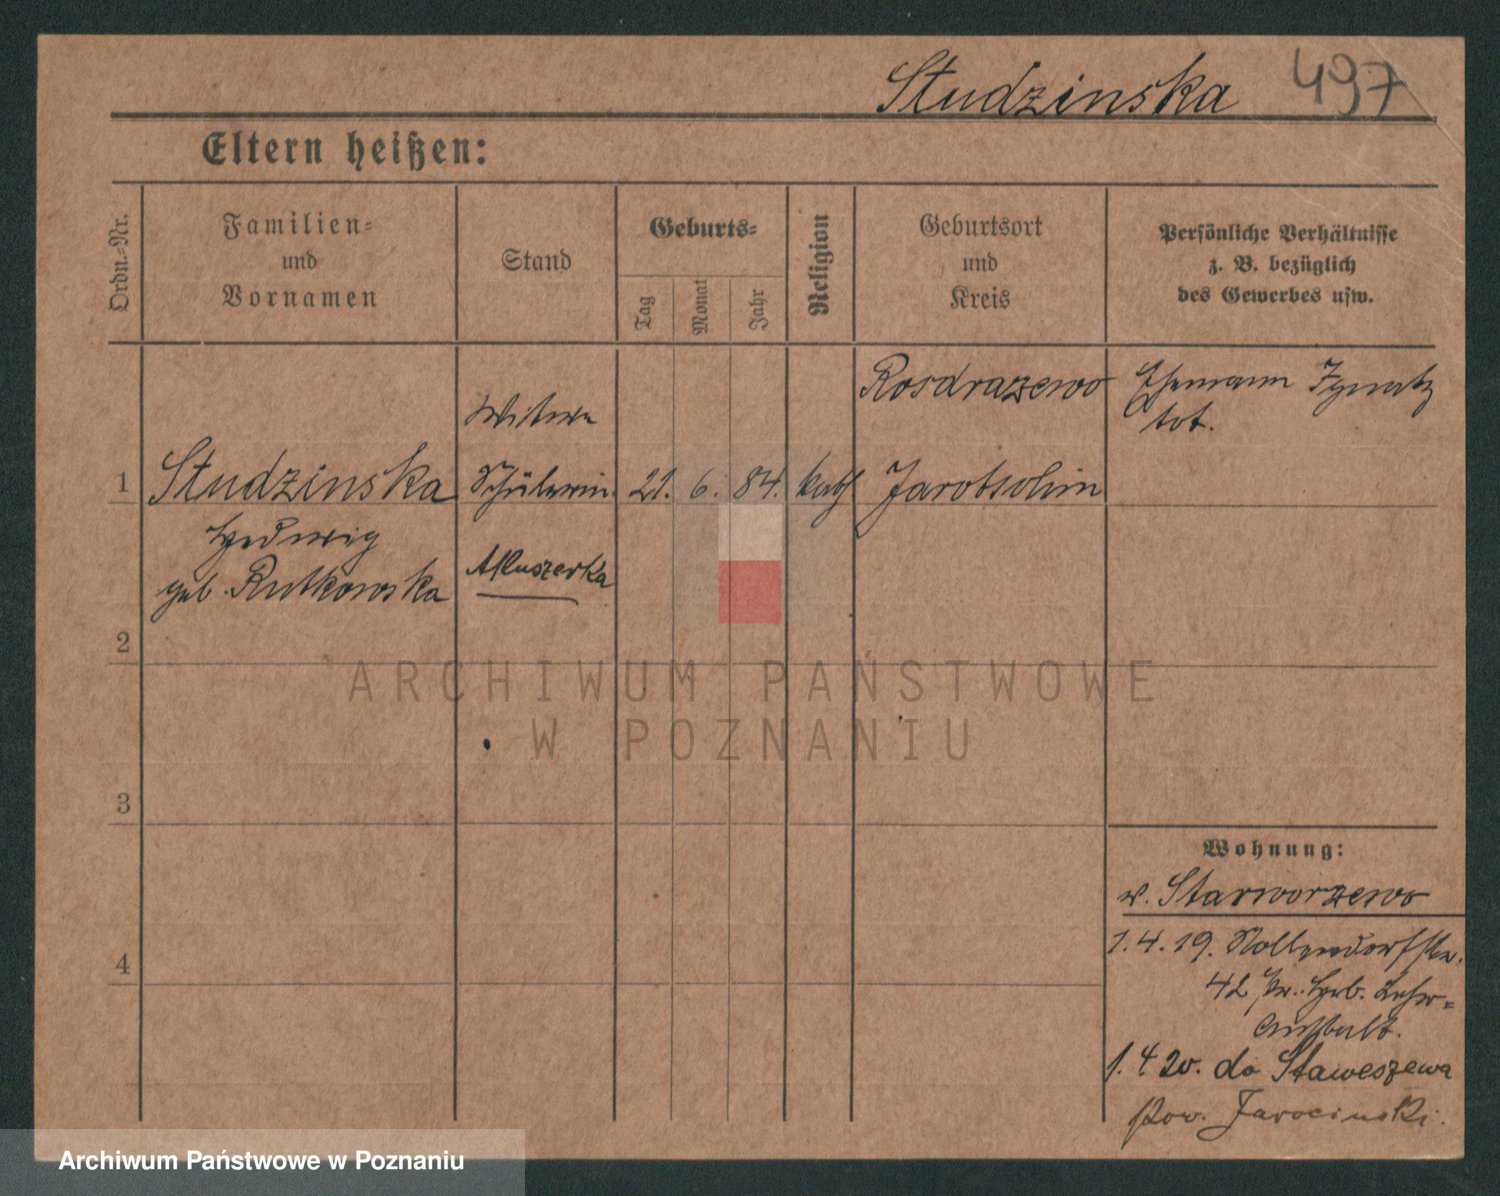 Studzinska 497
Eltern heißen:
Ordn.-Nr.
Familien-
und
Vornamen
Stand
Geburts-
Tag
Monat
Jahr
Religion
Geburtsort
und
Kreis
Persönliche Verhältnisse
z. B. bezüglich
des Gewerbes usw.
1
Studzinska
Hedwig
geb. Rutkowska
Witwe
Schülerin
Akuszerka
21. 6. 84. kath
Rosdrazewo
Jarotschin
Ehemann Ignatz
tot.
2
3
4
Wohnung:
v. Starworzewo
1. 4. 19. Nollendorfstr.
42 Pr. Heb. Lehr-
anstalt.
1. 4. 20. do Staweszewa
pow. Jarocinski.
ARCHIWUM PAŃSTWOWE
W POZNANIU
Archiwum Państwowe w Poznaniu